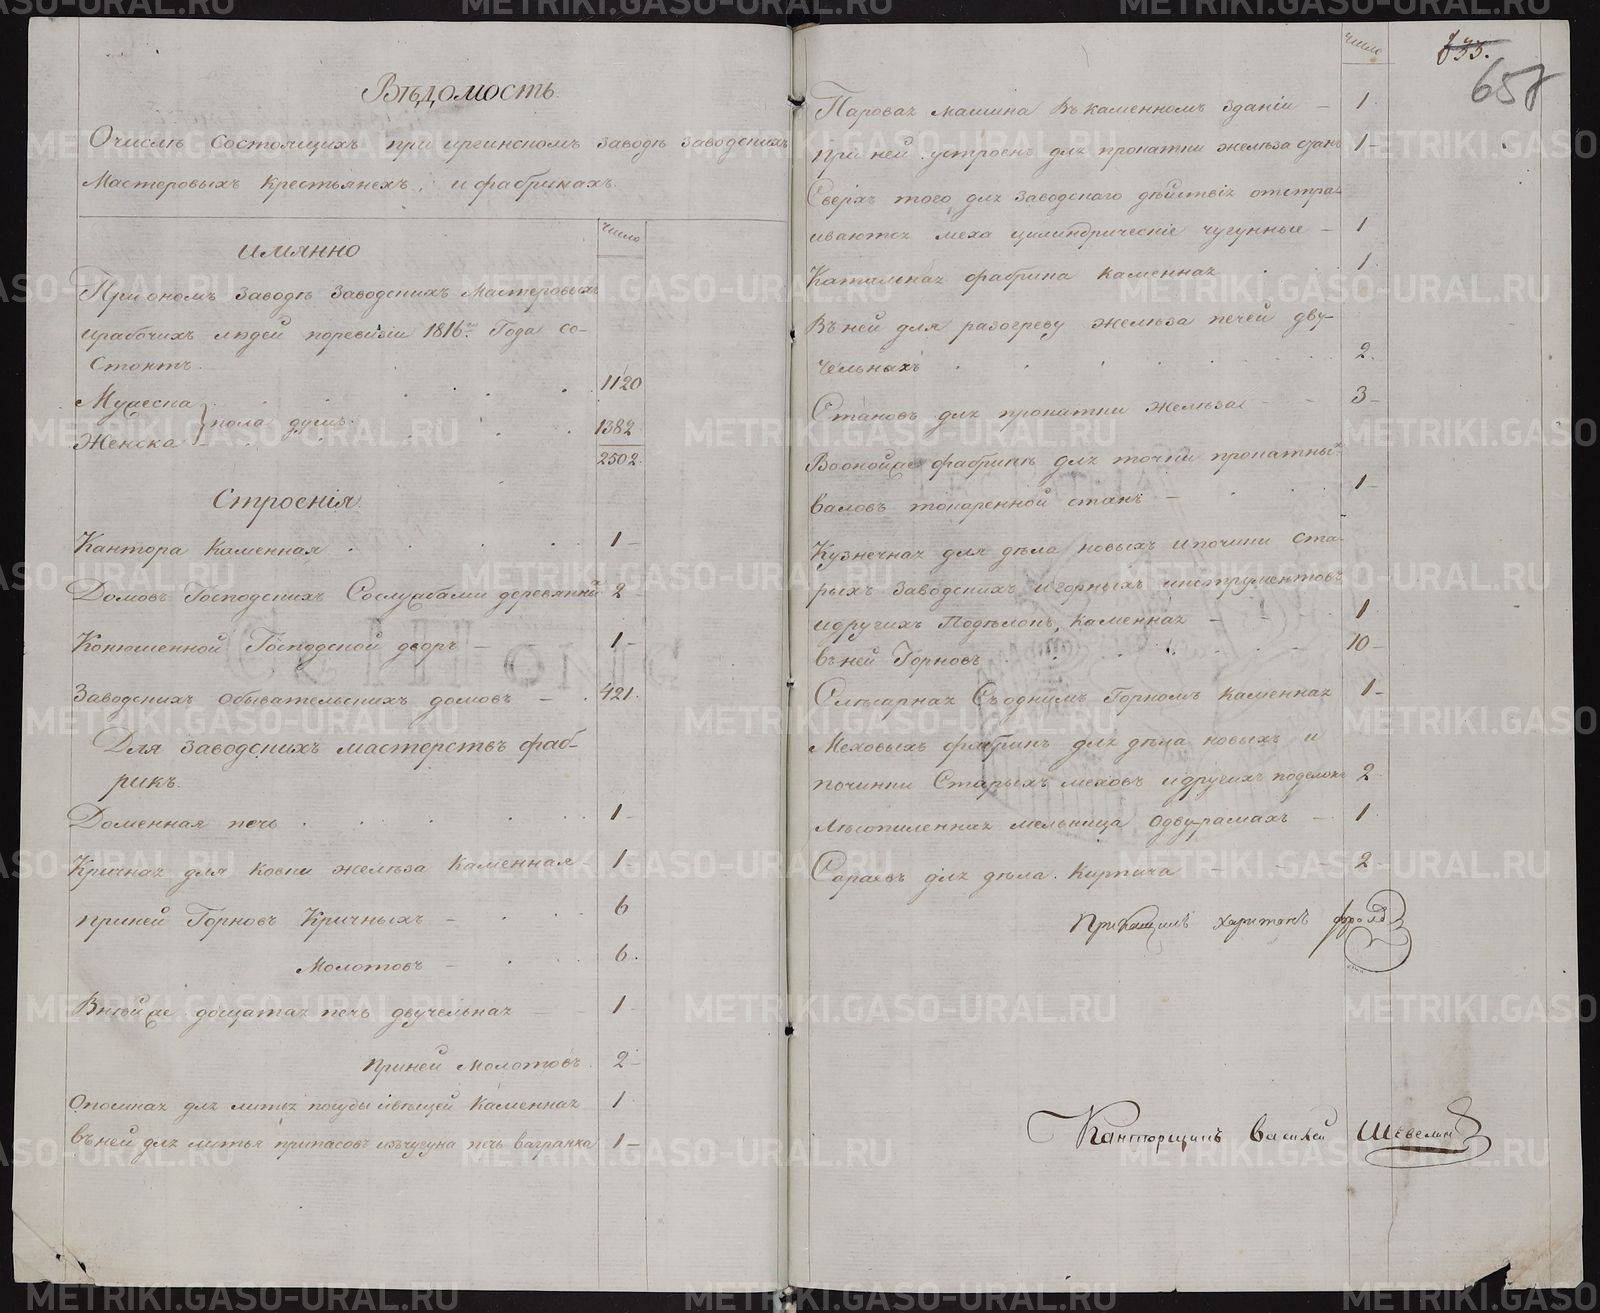 Вѣдомость
О числѣ состоящихъ при иргинскомъ заводѣ заводскихъ
Мастеровыхъ Крестьянехъ, и фабрикахъ.
Число
имянно
При ономъ заводѣ заводскихъ Мастеровыхъ
ирабочихъ людей поревизіи 1816го Года со-
стоитъ.
Мужеска 1120
пола душъ.
Женска 1382
2502.
Строенія.
Кантора Каменная 1 —
Домовъ Господскихъ Сослужбами деревянны 2
Конюшенной Господской дворъ — 1 —
Заводскихъ обывательскихъ домовъ — 421.
Для заводскихъ мастерствъ фаб-
рикъ.
Доменная печь 1 —
Кричная для ковки желѣза Каменная — 1
приней Горновъ Кричныхъ — 6
Молотовъ — 6.
Внейже дощатая печь двучельная — 1 —
Приней Молотовъ. 2 —
для литья посуды Каменная 1
Въней для литья припасовъ изъчугуна печь вагранка 1 —
Число
835.
657
Паровая машина Въ каменномъ зданіи — 1
При ней устроенъ для прокатки желѣза станъ 1 —
Сверхъ того для заводскаго дѣйствія отстра-
иваются меха цилиндрическіе чугунные — 1
Катальная фабрика каменная 1.
Въ ней для разогреву желѣза печей дву-
чельныхъ 2.
Становъ для прокатки желѣза — 3 —
Воонойже фабрикѣ для точки прокатных
валовъ токаренной станъ — 1 —
Кузнечная для дѣла новыхъ ипочини ста-
рыхъ заводскихъ игорныхъ инструментовъ
идругихъ Подѣлокъ, каменная — 1
Въ ней Горновъ 10 —
Слѣсарная Съоднимъ Горномъ каменная 1 —
Меховыхъ фабрикъ для дѣла новыхъ и
починки Старыхъ меховъ идругихъ поделокъ 2
Лѣсопиленная мельница одвурамахъ — 1
Сараевъ для дѣла Кирпича — 2 —
Прикащикъ харитонъ
Канторщикъ Василей Шевелин
METRIKI.GASO-URAL.RU